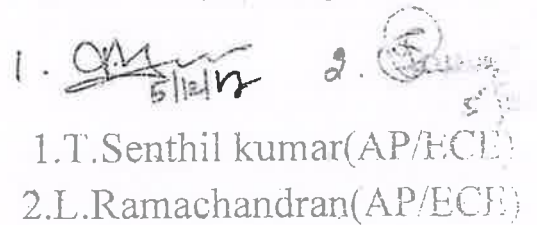 1. 2.
5/12/17
1.T.Senthil kumar(AP/ECE)
2.L.Ramachandran(AP/ECE)